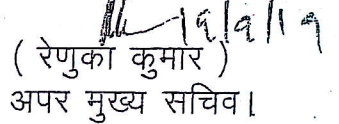 19/9/19
( रेणुका कुमार )
अपर मुख्य सचिव।